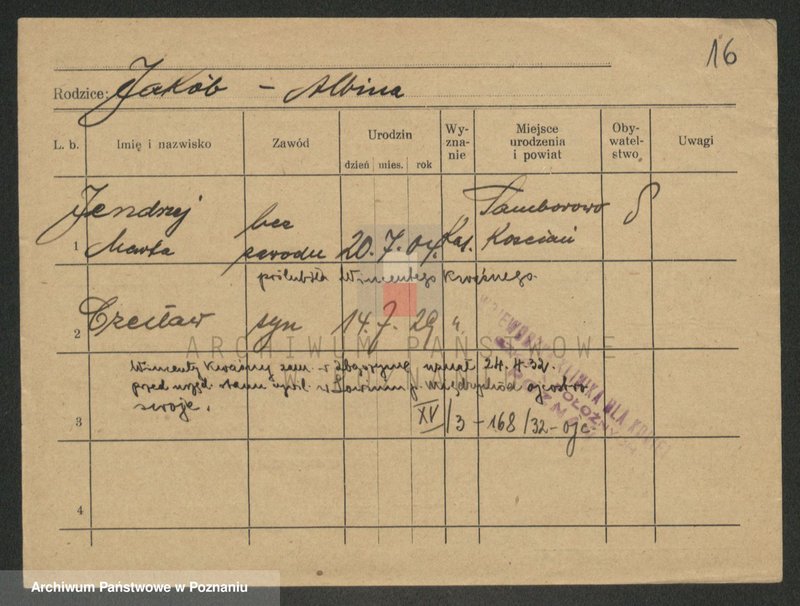 16
Rodzice: Jakób – Albina
L. b. Imię i nazwisko Zawód Urodzin dzień mies. rok Wy-zna-nie Miejsce urodzenia i powiat Oby-watel-stwo Uwagi
Jendrzej
1 Marta bez zawodu 20. 7. 04. kat. Kościan
poślubiła Wincentego
2 Czesław syn 14. 7. 29
ARCHIWUM PAŃSTWOWE
Wincenty uznał 24. 4. 32.
przed urzęd. stanu cywil. w p. Międzychód
swoje.
3 XV/3 – 168/32 – ojc.
4
Archiwum Państwowe w Poznaniu